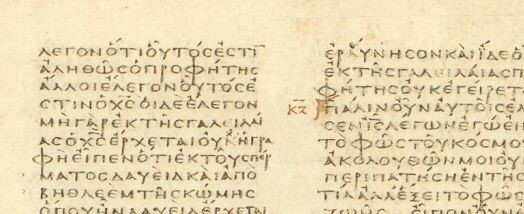 λεγονοτιουτοσεστι̅
αληθωσοπροφητης
αλλοιελεγονουτοσε
στινοχ̅σ̅οιδεελεγον
μηγαρεκτησγαλειλαι
ασοχ̅σ̅ερχεταιουχηγρα
φηειπενοτιεκτουσπερ
ματοσδαυειδκαιαπο
βηθλεεμτησκωμησ
οπουηνδαυειδερχεται
εραυνησονκαιιδεο
εκτησγαλειλαιασπ
φητησουκεγειρετα
κζ παλινουναυτοισελ
σενι̅σ̅λεγωνεγωει
τοφωστουκοσμο
ακολουθωνμοιου
περιπατησηεντησ
τιααλλεξειτοφωσ